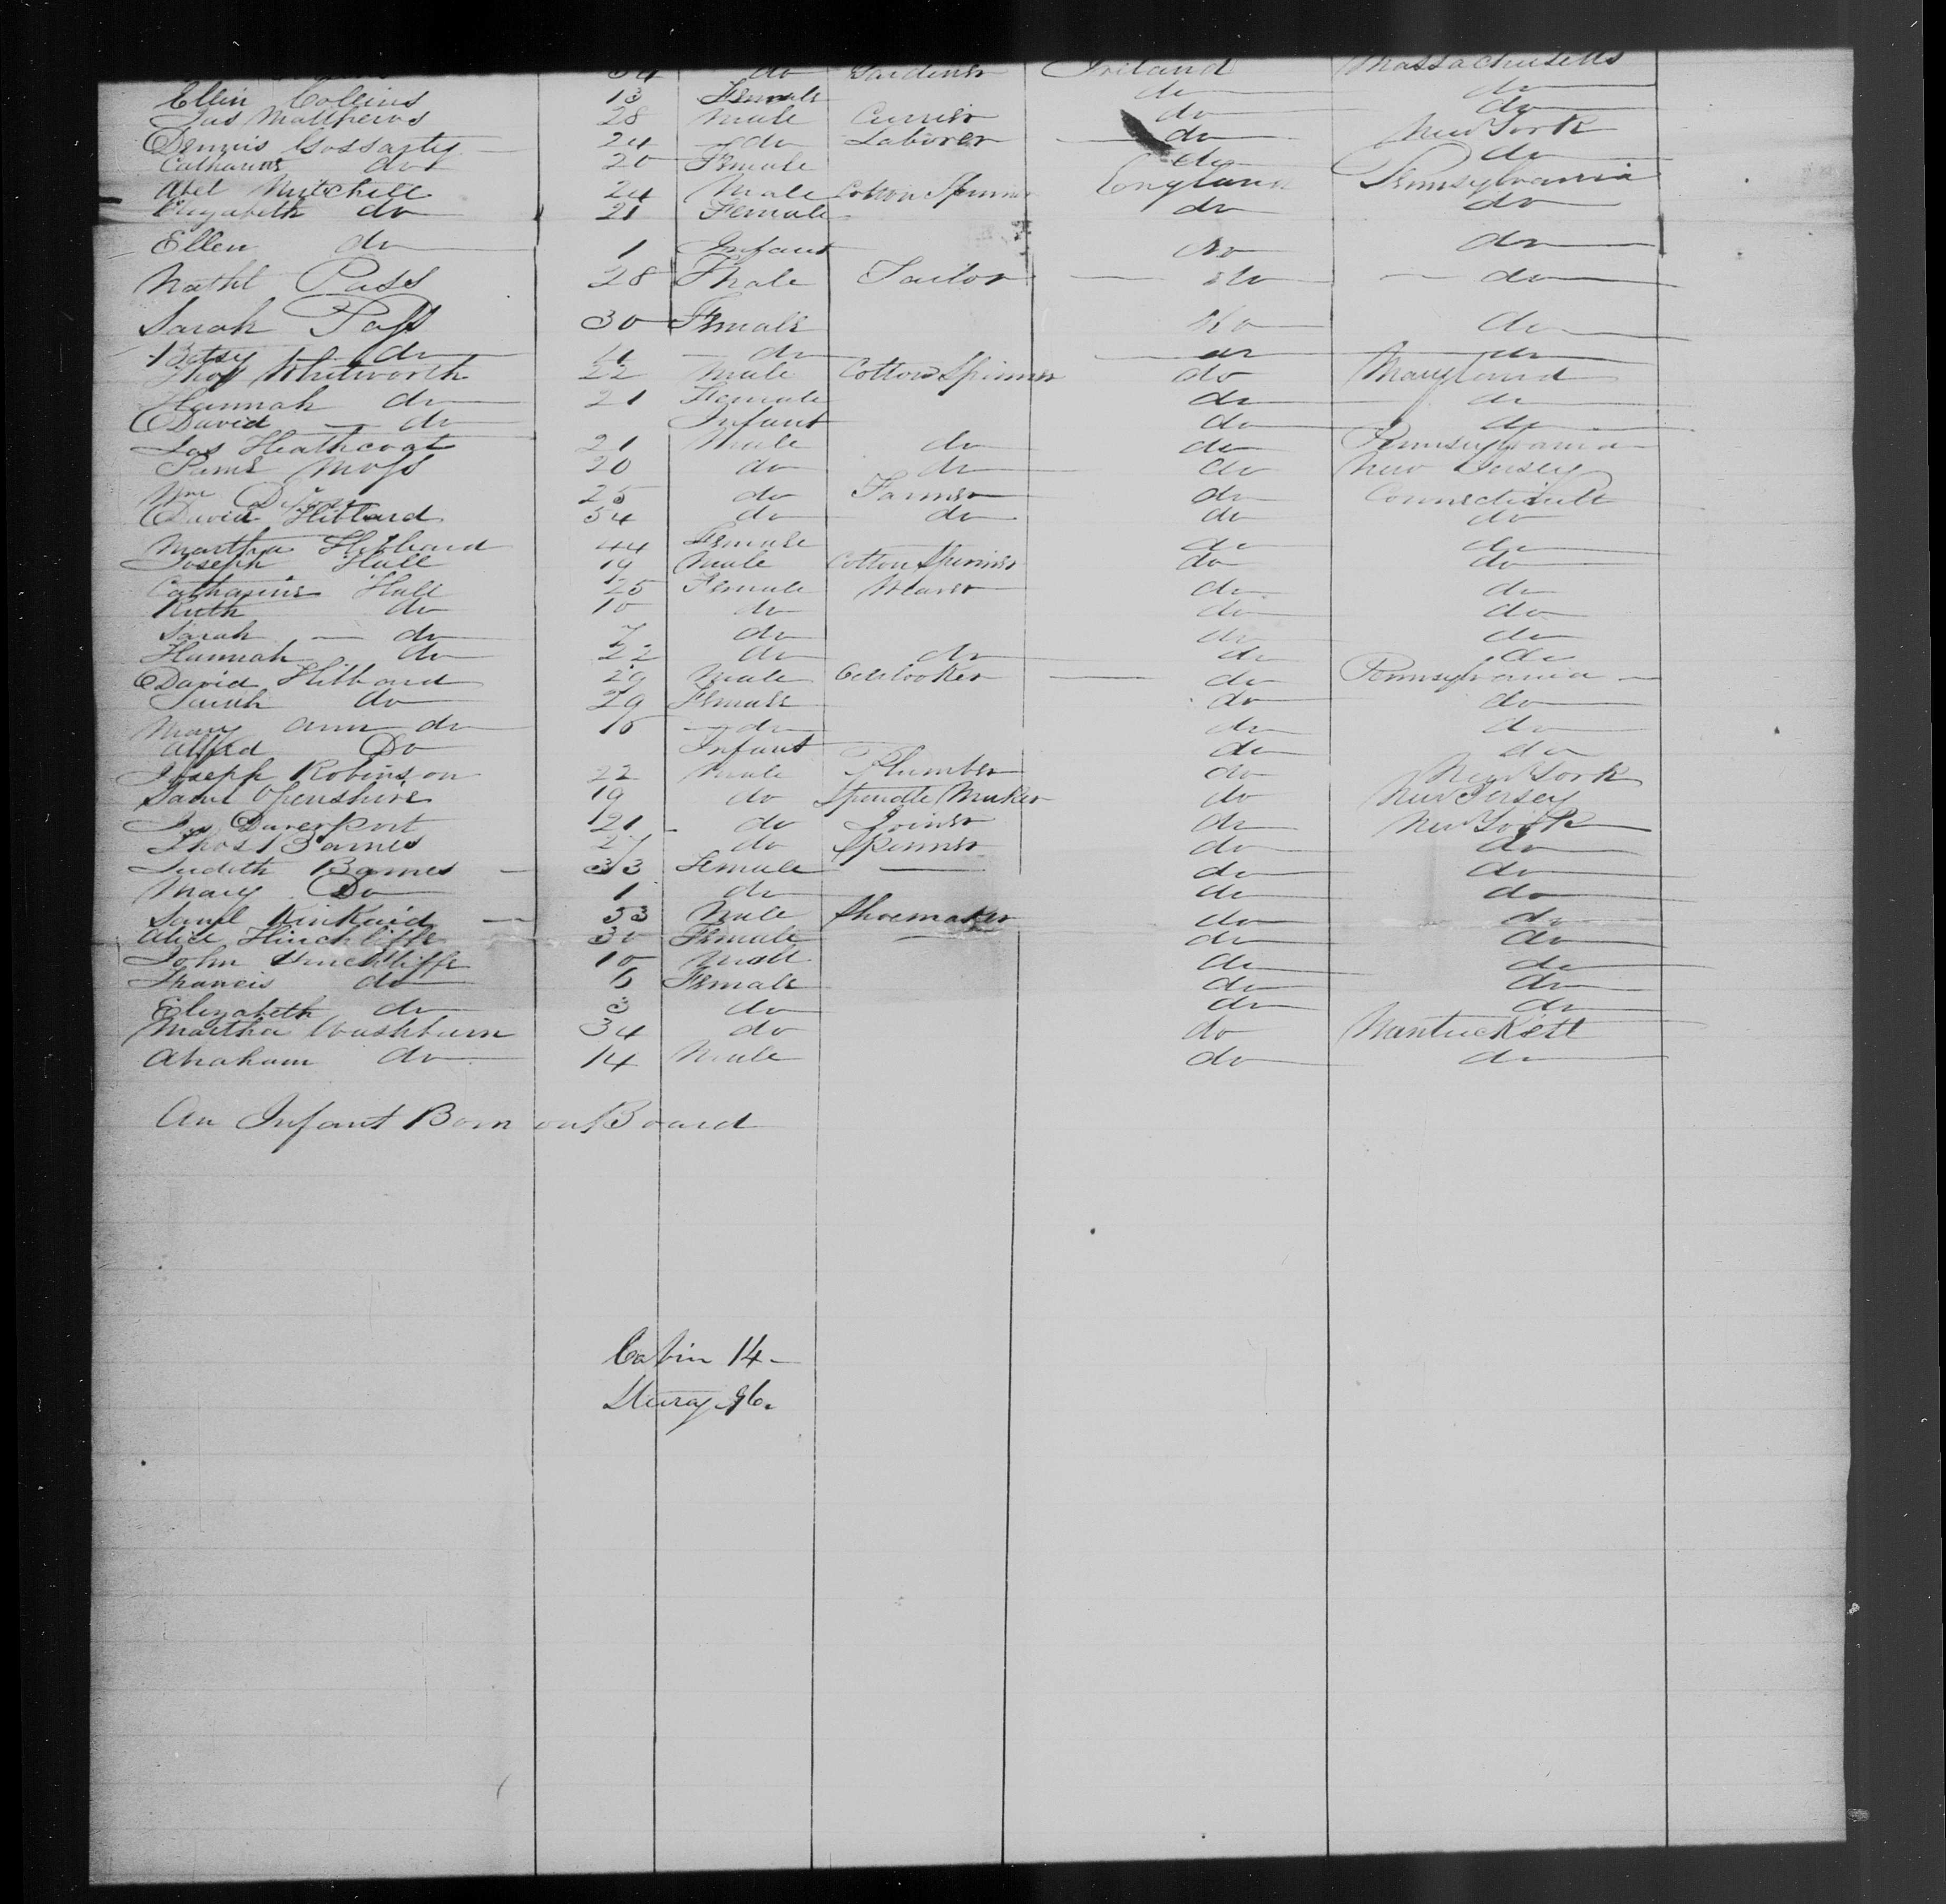 34 do Gardener Ireland Massachusetts
Ellin Collins 13 Female do do
Jas Matthews 28 Male Currier do do
Dennis Gossarty 24 do Laborer do New York
Catharine do 20 Female do do
Abel Mitchell 24 Male Cotton Spinner England Pennsylvania
Elizabeth do 21 Female do do
Ellen do 1 Infant do do
Nathl Pass 28 Male Tailor do do
Sarah Pass 30 Female do do
Betsy do 4 do do do
Thos Whitworth 22 Male Cotton Spinner do Maryland
Hannah do 21 Female do do
David do Infant do do
Jas Heathcoat 21 Male do do Pennsylvania
Saml Moss 20 do do do New Jersey
Wm 25 do Farmer do Connecticutt
David Hibbard 54 do do do do
Martha Hibbard 44 Female do do
Joseph Hall 19 Male Cotton Spinner do do
Catharine Hall 25 Female Weaver do do
Ruth do 10 do do do
Sarah do 7 do do do
Hannah do 22 do do do do
David Hibbard 29 Male Overlooker do Pennsylvania
Sarah do 29 Female do do
Mary Ann do 10 do do do
Alfred Do Infant do do
Joseph Robinson 22 Male Plumber do New York
Saml Openshire 19 do Spindle Maker do New Jersey
Jas Davenport 21 do Joiner do New York
Thos Barnes 27 do Spinner do do
Judith Barnes 33 Female do do
Mary Do 1 do do do
Saml Kinkaid 53 Male Shoemaker do do
Alice Hinchliffe 30 Female do do
John Hinchliffe 10 Male do do
Francis do 6 Female do do
Elizabeth do 3 do do do
Martha Washburn 34 do do Nantuckett
Abraham do 14 Male do do
An Infant Born on Board
Cabin 14
Sturag 96